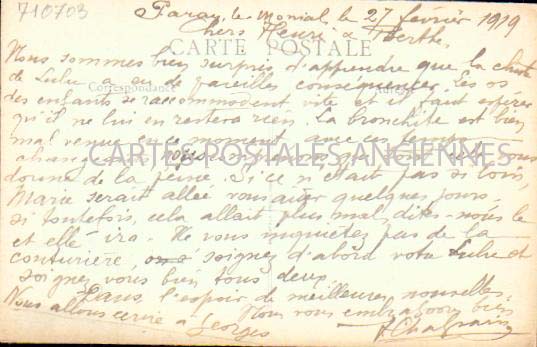 710703
Paray le Monial, le 27 février 1919
Chers Henri & Berthe,
CARTE POSTALE
Nous sommes bien surpris d'apprendre que la chute
de Lulu a eu de pareilles conséquences. Les os
Correspondance
des enfants se raccommodent vite et il faut espérer
qu'il ne lui en restera rien. La bronchite est bien
mal venue en ce moment avec ces temps
CARTES POSTALES ANCIENNES
donne de la peine. Si ce n'était pas si loin,
Marie serait allée vous aider quelques jours,
si toutefois, cela allait plus mal, dites-nous le
et elle ira. Ne vous inquiétez pas de la
couturière, soignez d'abord votre Lulu et
soignez vous bien tous deux.
Dans l'espoir de meilleures nouvelles.
Nous vous embrassons bien
Nous allons écrire à Georges